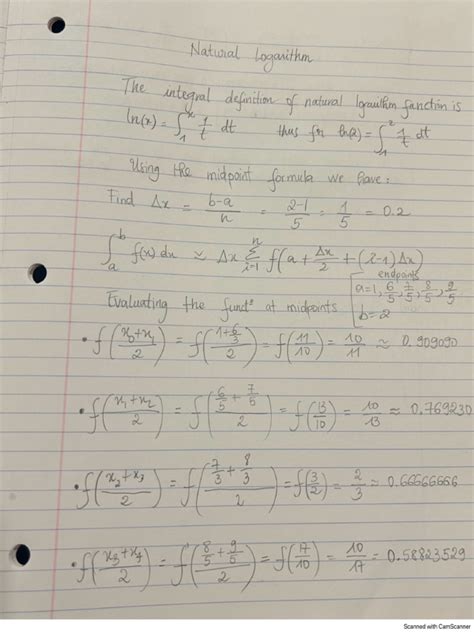 Natural Logarithm
The integral definition of natural logarithm function is
ln(x) = ∫₁ˣ 1/t dt thus for ln(2) = ∫₁² 1/t dt
Using the midpoint formula we have:
Find Δx = b-a/n = 2-1/5 = 1/5 = 0.2
∫ₐᵇ f(x) dx ≈ Δx Σⁿᵢ₋₁ f(a + Δx/2 + (i-1)Δx)
endpoints
[a=1, 6/5, 7/5, 8/5, 9/5
Evaluating the functⁿ at midpoints [b=2
• f(x₀+x₁/2) = f(1+6/5/2) = f(11/10) = 10/11 ≈ 0.909090
• f(x₁+x₂/2) = f(6/5+7/5/2) = f(13/10) = 10/13 ≈ 0.769230
• f(x₂+x₃/2) = f(7/3+8/3/2) = f(3/2) = 2/3 ≈ 0.66666666
• f(x₃+x₄/2) = f(8/5+9/5/2) = f(17/10) = 10/17 = 0.58823529
Scanned with CamScanner